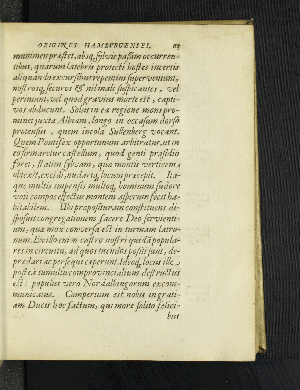 ORIGINES HAMBURGENSES. 83
munimen præstet, absq; sylvis passim occurren-
tibus, quarum latebris protecti hostes incertis
aliquando excursibus repentini superveniunt,
nostrosq; securos & nil mali suspicantes, vel
perimunt, vel quod gravius morte est, capti-
vos abducunt. Solus in ea regione mons pro-
minet juxta Albiam, longo in occasum dorso
protensus, quem incolæ Sullenberg vocant.
Quem Pontifex opportunum arbitratus, ut in
eo firmaretur castellum, quod genti præsidio
foret, statim sylvam, quæ montis verticem
excidi, nudarīq; locum præcepit. Ita-
que multis impensis multoq; hominum sudore
voti compos effectus montem asperum fecit ha-
bitabilem. Ubi præposituram constituens dis-
posuit congregationem facere Deo servienti-
um; quæ mox conversa est in turmam latro-
num. Ex illo enim castro nostri quidā popula-
res in circuitu, ad quos tuendos positi sunt, de-
prædari ac persequi cœperunt. Ideoq; locus ille
postea tumultu comprovincialium destructus
est: populus vero Nordalbingorum excom-
municatus. Compertum est nobis in grati-
am Ducis hoc factum, qui more solito felici-
bus